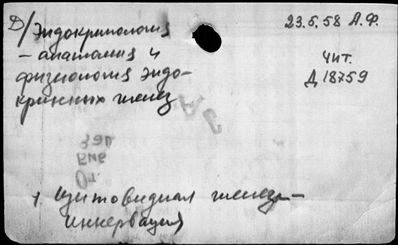 Д/Эндокринология
23.5.58 А.Ф.
– анатомия и
физиология эндо-
кринных желез
Чит.
Д 18759
1. Щитовидная железа –
иннервация